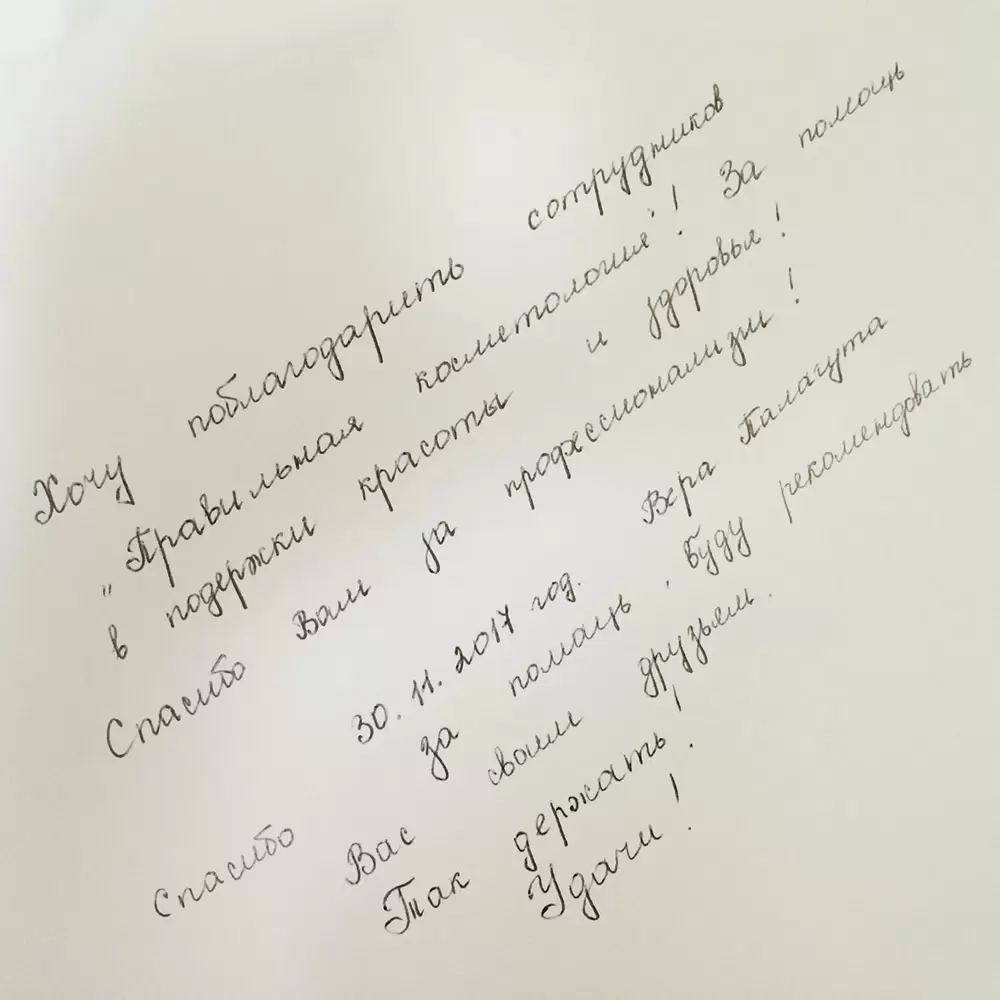 Хочу поблагодарить сотрудников
„Правильная косметология"! За помощь
в подержки красоты и здоровья!
Спасибо Вам за профессионализм!
30.11.2017 год. Вера Палагута
Спасибо за помощь, буду рекомендовать
Вас своим друзьям.
Так держать!
Удачи!